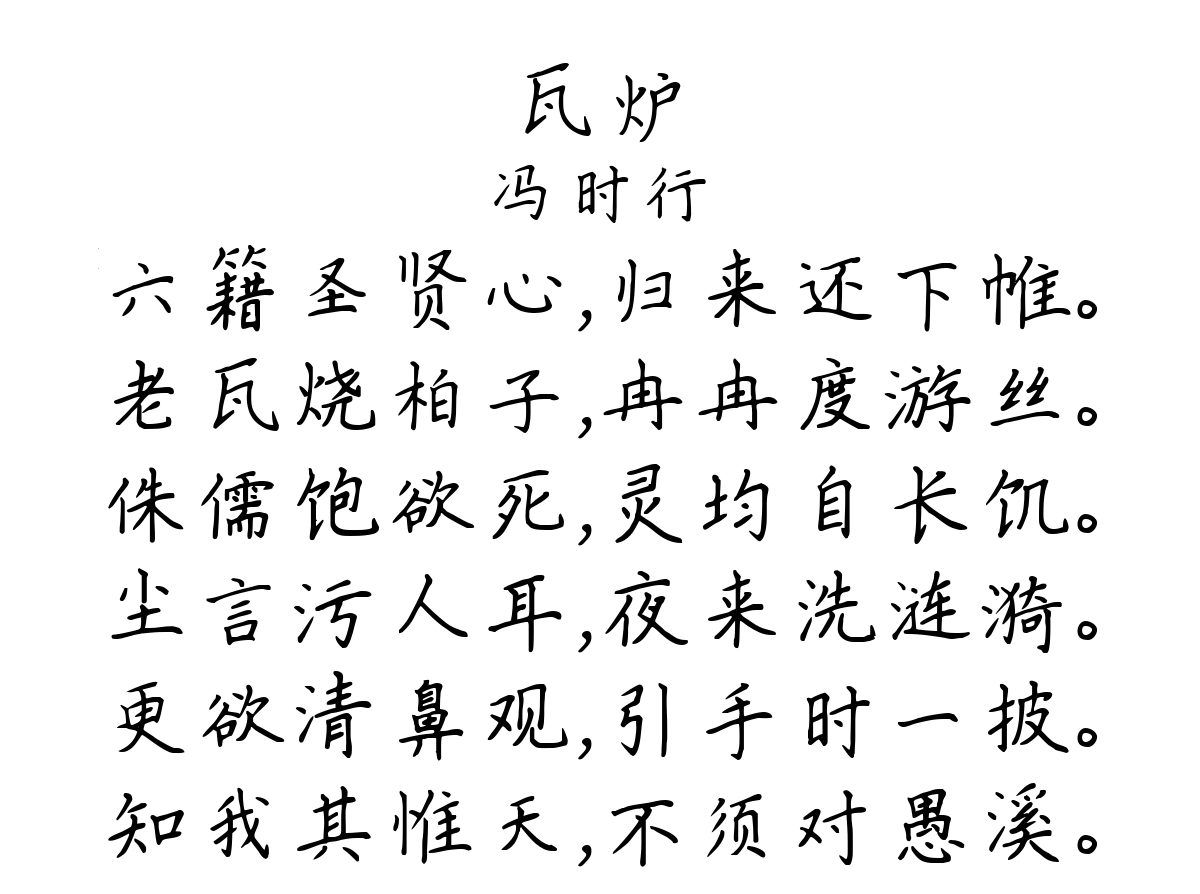 瓦炉
冯时行
六籍圣贤心,归来还下帷。
老瓦烧柏子,冉冉度游丝。
侏儒饱欲死,灵均自长饥。
尘言污人耳,夜来洗涟漪。
更欲清鼻观,引手时一披。
知我其惟天,不须对愚溪。